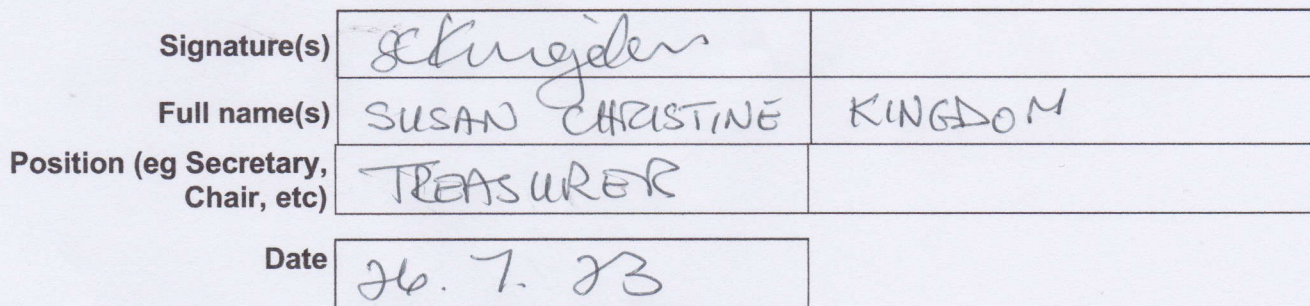 Signature(s) SCKingdom
Full name(s) SUSAN CHRISTINE KINGDOM
Position (eg Secretary,
Chair, etc) TREASURER
Date 26. 7. 23